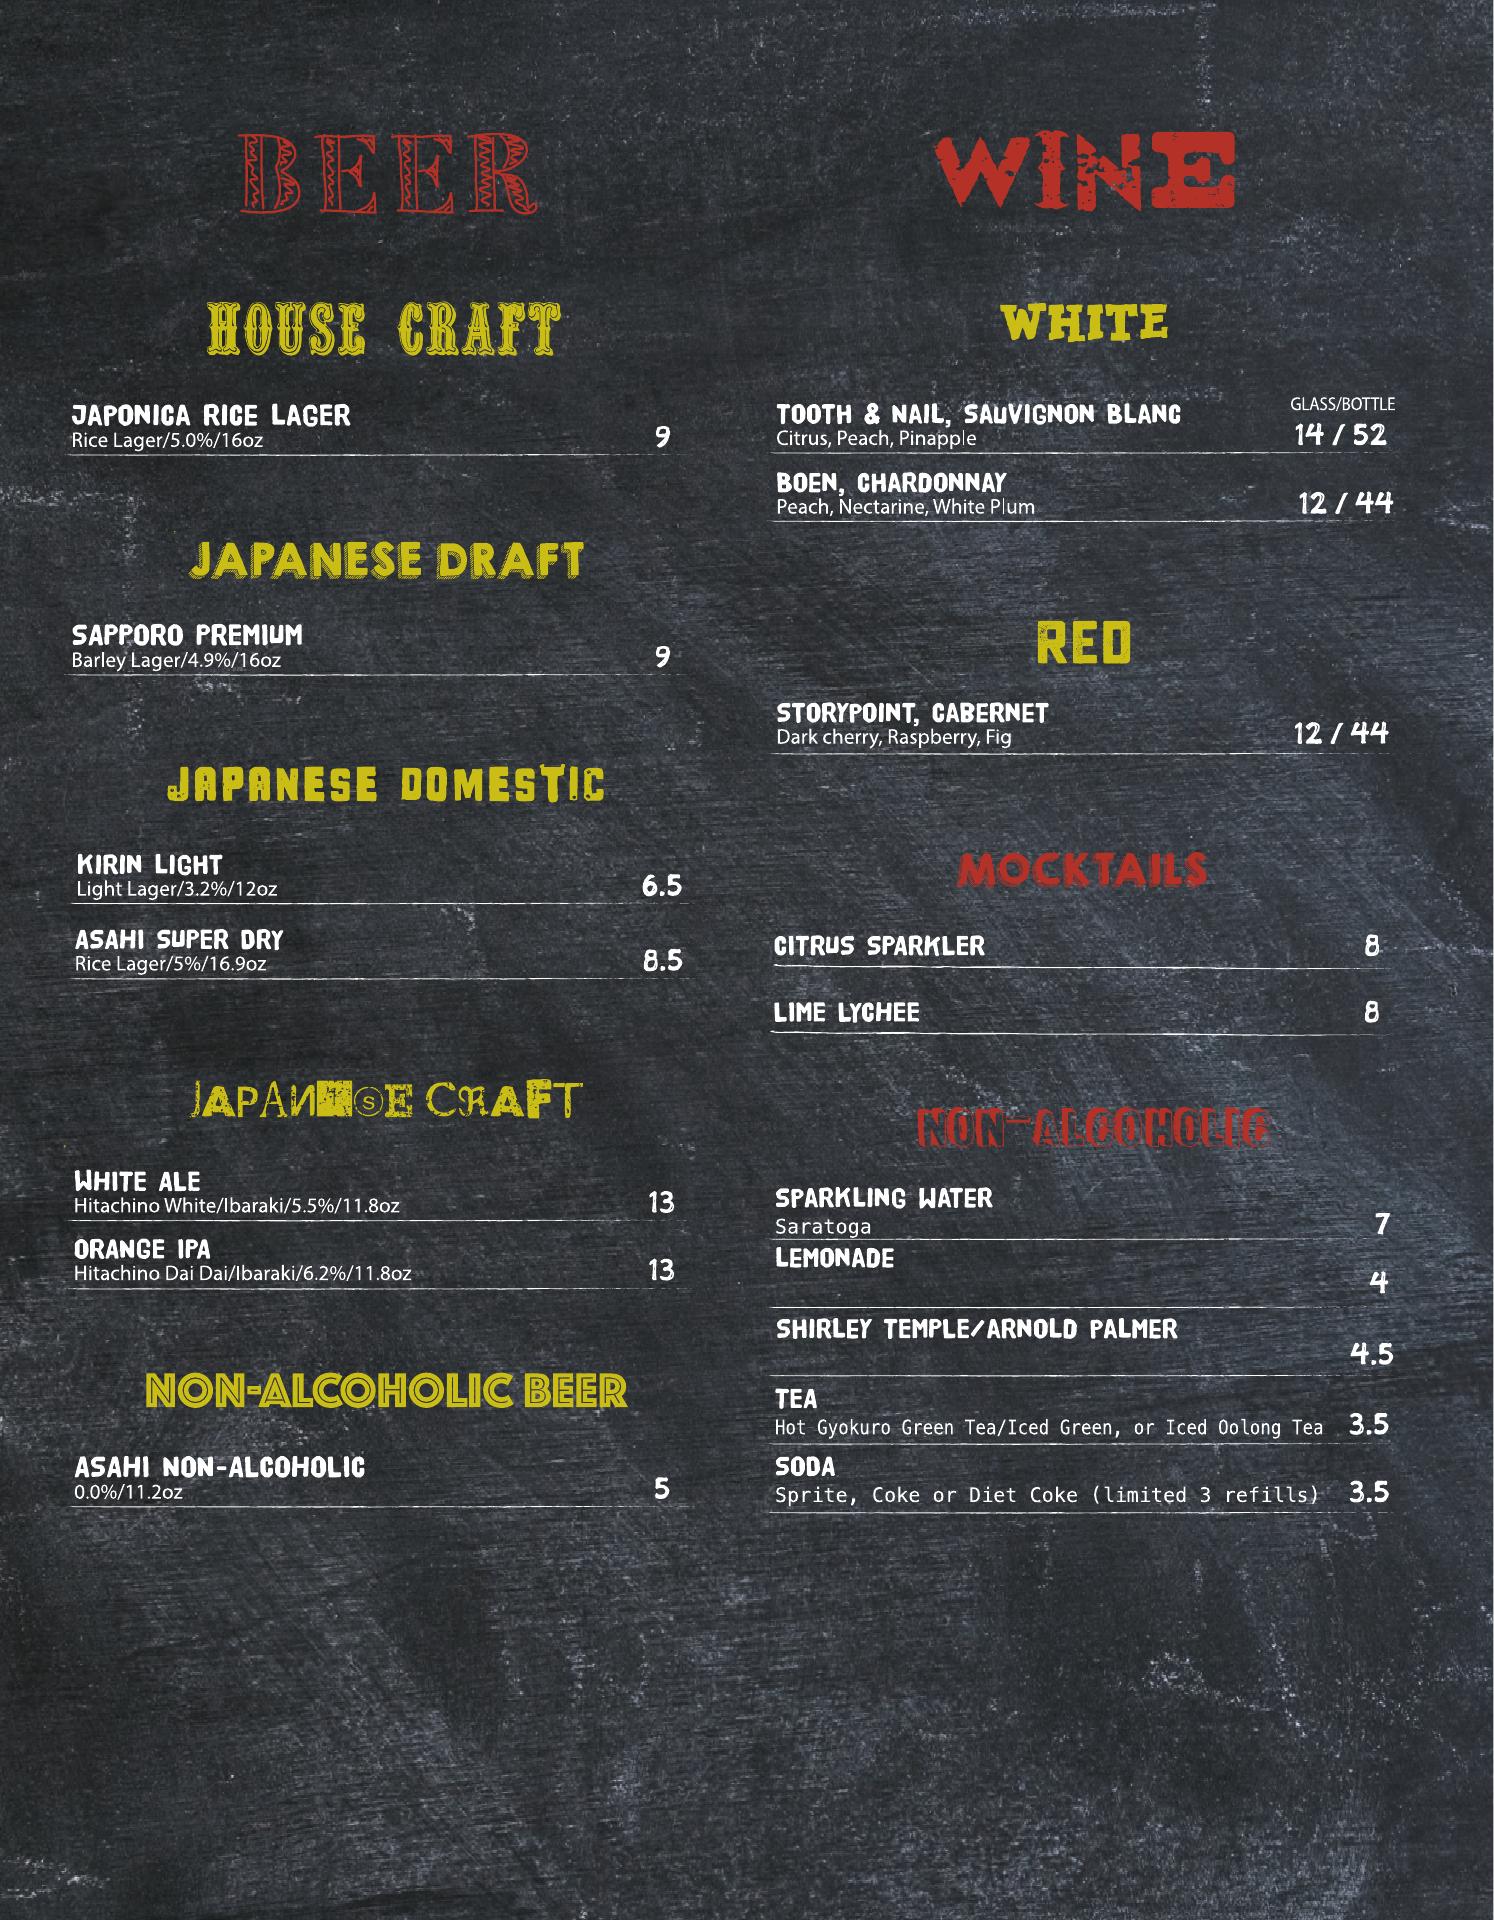 BEER
HOUSE CRAFT
JAPONICA RICE LAGER
Rice Lager/5.0%/16oz
9
JAPANESE DRAFT
SAPPORO PREMIUM
Barley Lager/4.9%/16oz
9
JAPANESE DOMESTIC
KIRIN LIGHT
Light Lager/3.2%/12oz
6.5
ASAHI SUPER DRY
Rice Lager/5%/16.9oz
8.5
JAPANESE CRAFT
WHITE ALE
Hitachino White/Ibaraki/5.5%/11.8oz
13
ORANGE IPA
Hitachino Dai Dai/Ibaraki/6.2%/11.8oz
13
NON-ALCOHOLIC BEER
ASAHI NON-ALCOHOLIC
0.0%/11.2oz
5
WINE
WHITE
GLASS/BOTTLE
TOOTH & NAIL, SAUVIGNON BLANC
Citrus, Peach, Pinapple
14 / 52
BOEN, CHARDONNAY
Peach, Nectarine, White Plum
12 / 44
RED
STORYPOINT, CABERNET
Dark cherry, Raspberry, Fig
12 / 44
MOCKTAILS
CITRUS SPARKLER
8
LIME LYCHEE
8
NON-ALCOHOLIC
SPARKLING WATER
Saratoga
7
LEMONADE
4
SHIRLEY TEMPLE/ARNOLD PALMER
4.5
TEA
Hot Gyokuro Green Tea/Iced Green, or Iced Oolong Tea
3.5
SODA
Sprite, Coke or Diet Coke (limited 3 refills)
3.5